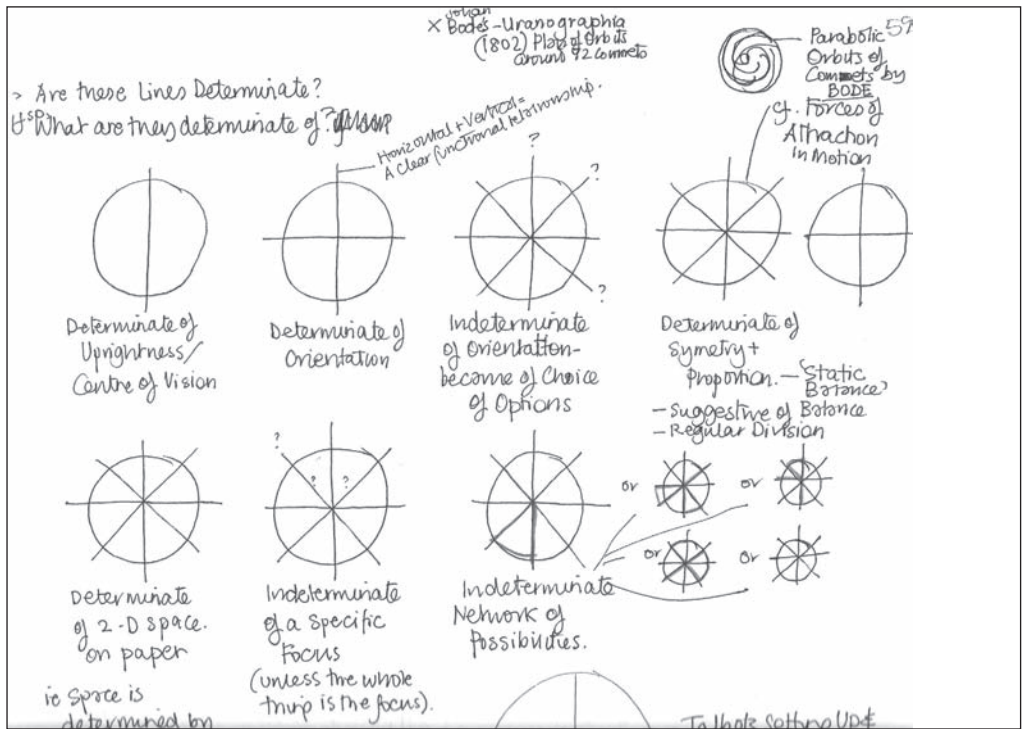 Johan
× Bode's - Uranographia
(1802) Plays of Orbits
around 92 Comets
Parabolic 59
Orbits of
Comets by
BODE
cf. Forces of
Attraction
in Motion
> Are these Lines Determinate?
What are they determinate of?
Horizontal + Vertical =
A clear functional relationship.
?
?
?
Determinate of
Uprightness/
Centre of Vision
Determinate of
Orientation
Indeterminate
of Orientation -
become of Choice
of Options
Determinate of
Symetry +
Proportion. — Static
Balance?
- Suggestive of Balance
- Regular Division
?
? ?
or
or
or
or
Determinate
of 2-D space.
on paper
Indeterminate
of a Specific
Focus
(unless the whole
thing is the focus).
Indeterminate
Network of
Possibilities.
ie Space is
determined by